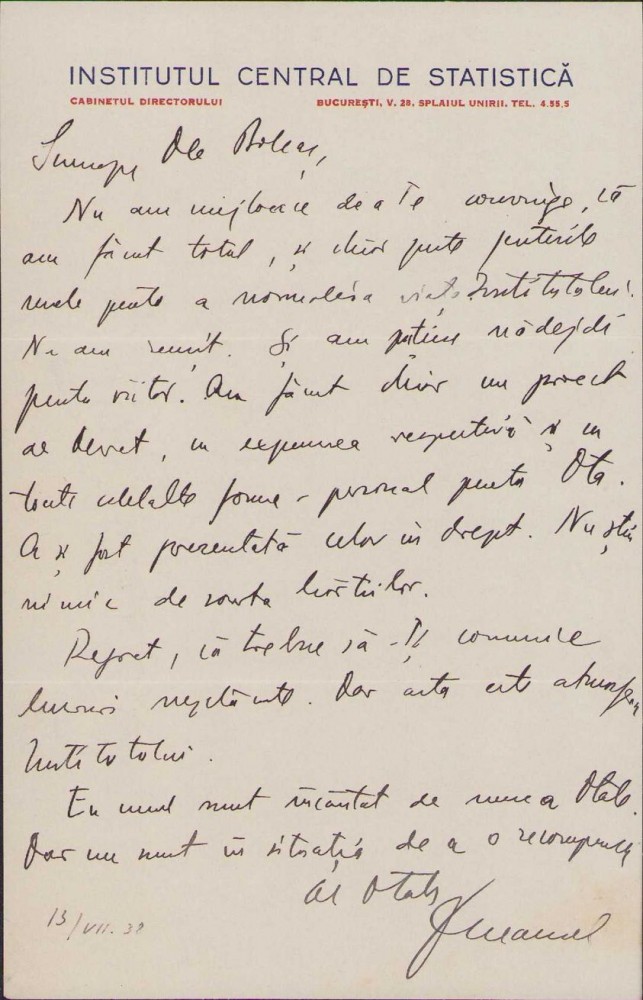 INSTITUTUL CENTRAL DE STATISTICĂ
CABINETUL DIRECTORULUI
BUCUREȘTI, V. 28. SPLAIUL UNIRII. TEL. 4.55,5
Scumpe Dle
Nu am mijloace de a Te convinge, că
am făcut totul, și chiar peste puterile
mele pentru a normaliza viața Institutului.
Nu am reușit. Și am puține nădejdi
pentru viitor. Am făcut chiar un proiect
de Decret, cu expunerea respectivă și cu
toate celelalte forme - personal pentru Dta.
A și fost prezentată celor în drept. Nu știu
nimic de soarta hârtiilor.
Regret, că trebue să-Ți comunic
lucruri neplăcute. Dar asta este atmosfera
Institutului.
Eu unul sunt încântat de munca Dtale.
Dar nu sunt în situația de a o recompensa
Al Dtale
13/VII. 38